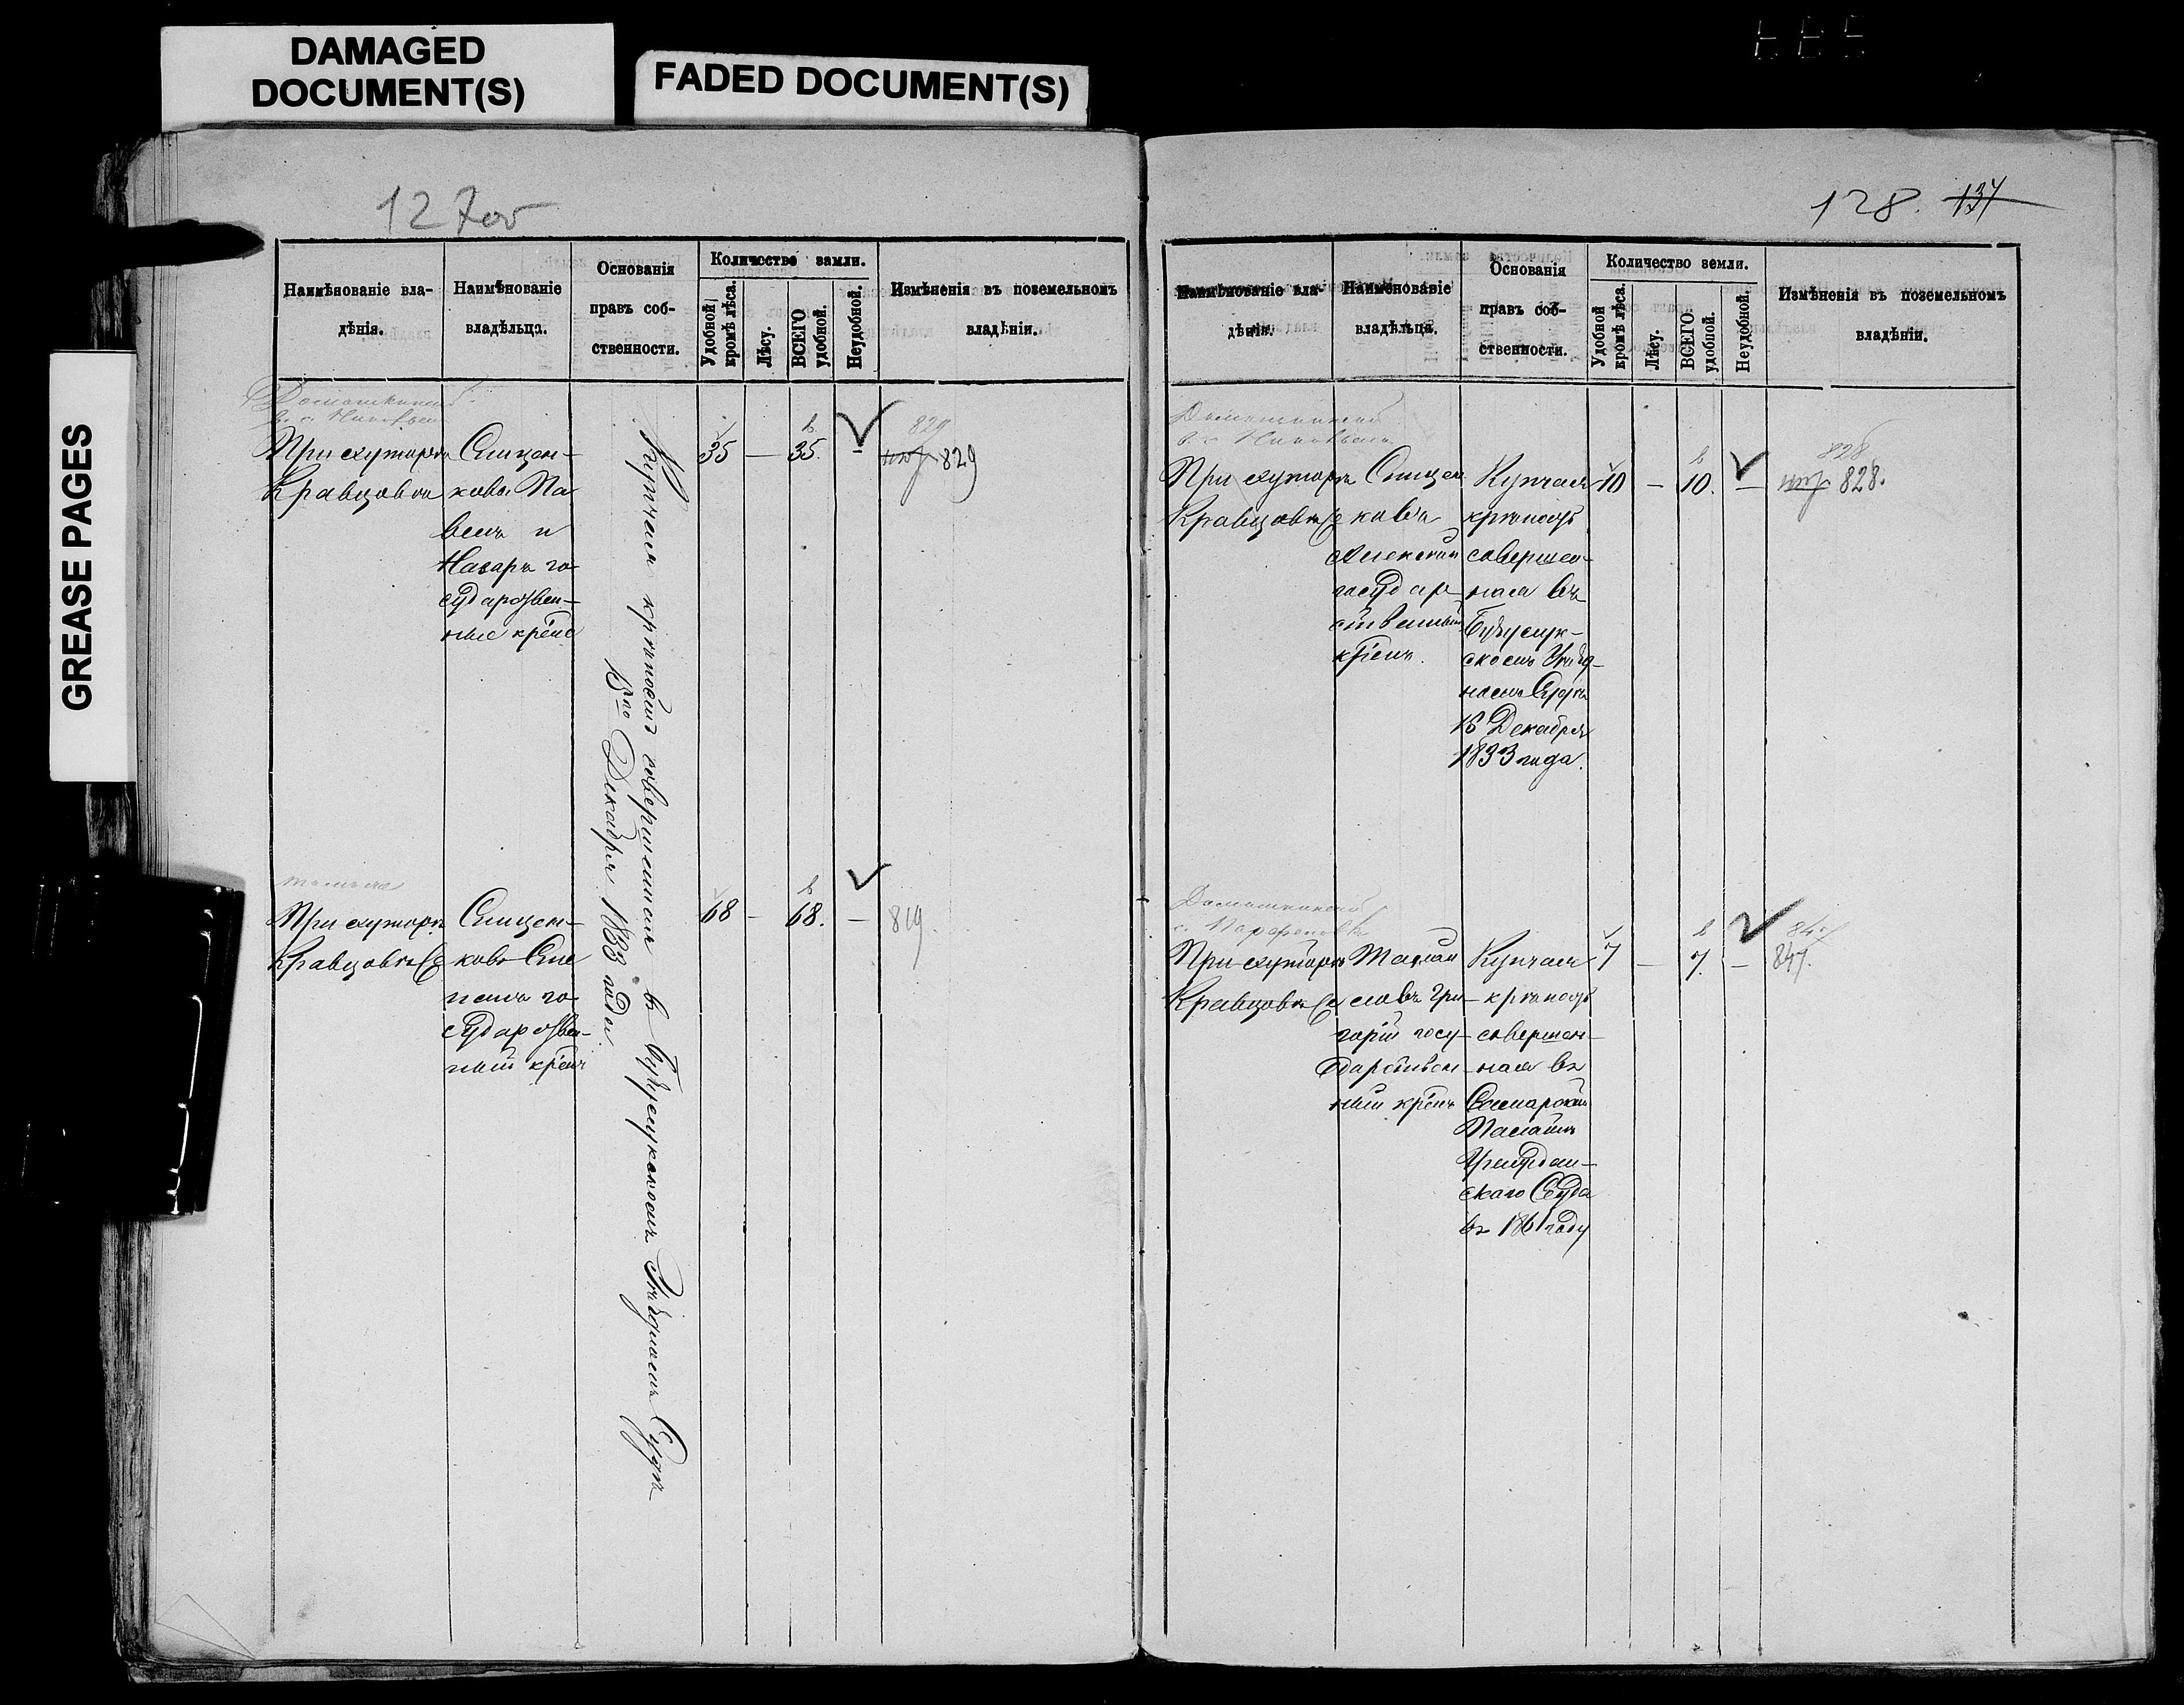 DAMAGED
DOCUMENT(S)
FADED DOCUMENT(S)
GREASE PAGES
127об
Наимѣнованіе вла-
дѣнія.
Наимѣнованіе
владѣльца.
Основанія
правъ соб-
ственности.
Количество земли.
Удобной
кромѣ лѣса.
Лѣсу.
ВСЕГО
удобной.
Неудобной.
Измѣненія въ поземельномъ
владѣніи.
При хуторѣ
Кравцовѣ
Слицен-
ковы Па
велъ и
Назаръ го-
сударствен-
ные крѣне
Купчая крѣпость совершенная въ Бузулукскомъ Уѣздномъ Судѣ
15го Декабря 1833 года.
35 — 35. —
829
829
При хуторѣ
Кравцовѣ
Слицен-
ковъ
го-
сударствен-
ный
68 — 68. —
819.
128. 137
Наимѣнованіе вла-
дѣнія.
Наименованіе
владѣльца.
Основанія
правъ соб-
ственности.
Количество земли.
Удобной
кромѣ лѣса.
Лѣсу.
ВСЕГО
удобной.
Неудобной.
Измѣненія въ поземельномъ
владѣніи.
При хуторѣ
Кравцовѣ
Слицен
ковъ
Алексѣй
государ-
ственный
Купчая
крѣпость
совершен-
ная въ
Бузулук-
скомъ Уѣзд-
номъ Судѣ
15 Декабря
1833 года.
10 — 10. —
828
828.
При хуторѣ
Кравцовѣ
Гри-
горій госу-
дарствен-
ный
Купчая
крѣпость
совершен-
ная въ
Самарской
Палатѣ
Граждан-
скаго Суда
въ 1861 году
7 — 7. —
847.